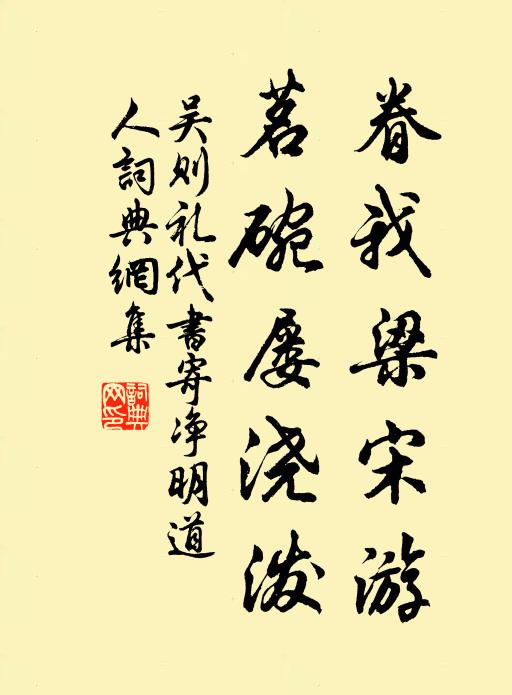 眷我梁宋游
茗碗屡浇泼
吴则礼代书寄净明道
人詞典網集
詞典
网印